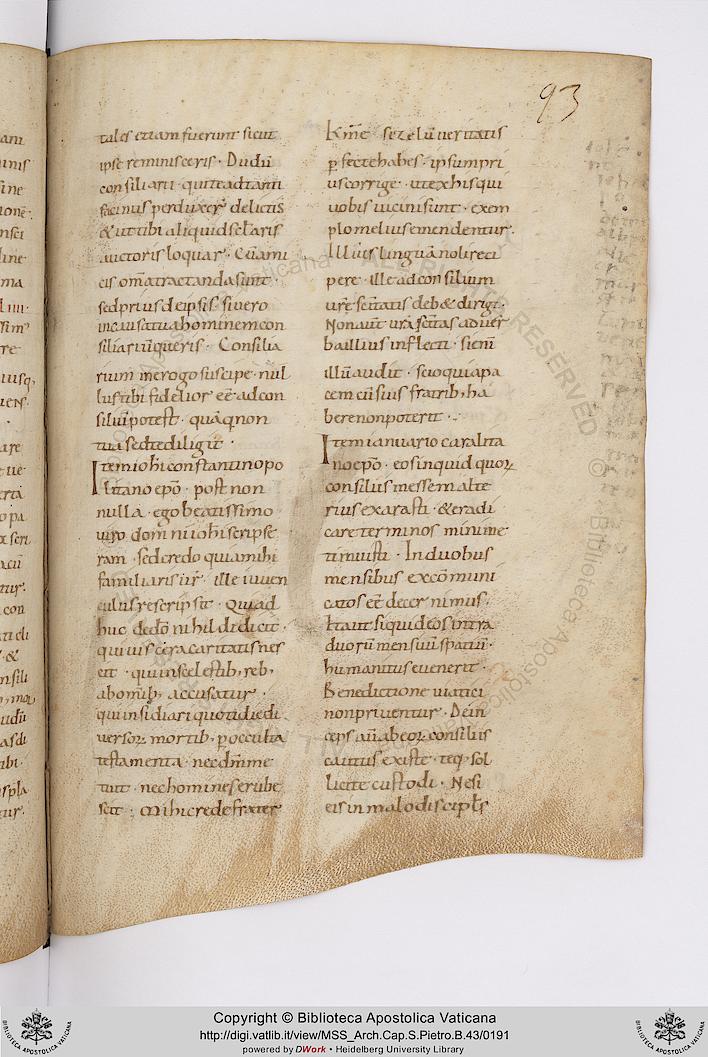 93
tales etiam fuerunt sicut
ipse reminisceris · Dudū
consiliarii · qui te ad tanti
facinus perduxer̄ delictis
& ut tibi aliquid sct̄aris
auctoris loquar · Cū ami
cis om̄a tractanda sunt ·
sed prius de ipsis · si vero
in cuiusq tua hominem con
siliariū queris · Consilia
rium me rogo suscipe · nul
lus tibi fidelior eē ad con
siliū potest · quā q non
tua sed te diligit ·
Item ioh̄i constantinopo
litano ep̄o · post non
nulla · ego beatissimo
viro domni ioh̄i scripse
ram · sed credo quia mihi
familiaris ur̄ · ille iuven
culus rescripsit · Qui ad
huc de dō nihil didicit ·
qui viscera caritatis nes
cit · qui in scelestib; reb;
ab omib; accusatur ·
qui insidiari quotidie di
versoꝝ mortib; p occulta
testamenta · nec dm̄ me
tuit · nec homines erube
scit · Mihi crede frater
km̄e · se zelū veritatis
pfecte habes · ipsum pri
us corrige · ut ex his qui
vobis vicini sunt · exem
plo melius emendentur ·
Illius linguā noli reci
pere · ille ad consilium
ur̄e sc̄itatis deb& dirigi ·
Non aut̄ ur̄a sc̄itas ad ver
ba illius inflecti · si enī
illū audit · scio quia pa
cem cū suis fratrib; ha
bere non poterit ·
Item ianuario caralita
no ep̄o · eos inquid quoꝝ
consiliis messem alte
rius exarasti · & eradi
care terminos minime
timuisti · In duobus
mensibus excōmuni
catos eē decernimus ·
Ita ut si quid eos intra
duorū mensiū spatiū ·
humanitus evenerit ·
Benedictione viatici
non priventur · Dein
ceps aū ab eoꝝ consiliis
cautus existe · teq; sol
licite custodi · Ne si
eis in malo discipl̄s
Copyright © Biblioteca Apostolica Vaticana
http://digi.vatlib.it/view/MSS_Arch.Cap.S.Pietro.B.43/0191
powered by DWork • Heidelberg University Library